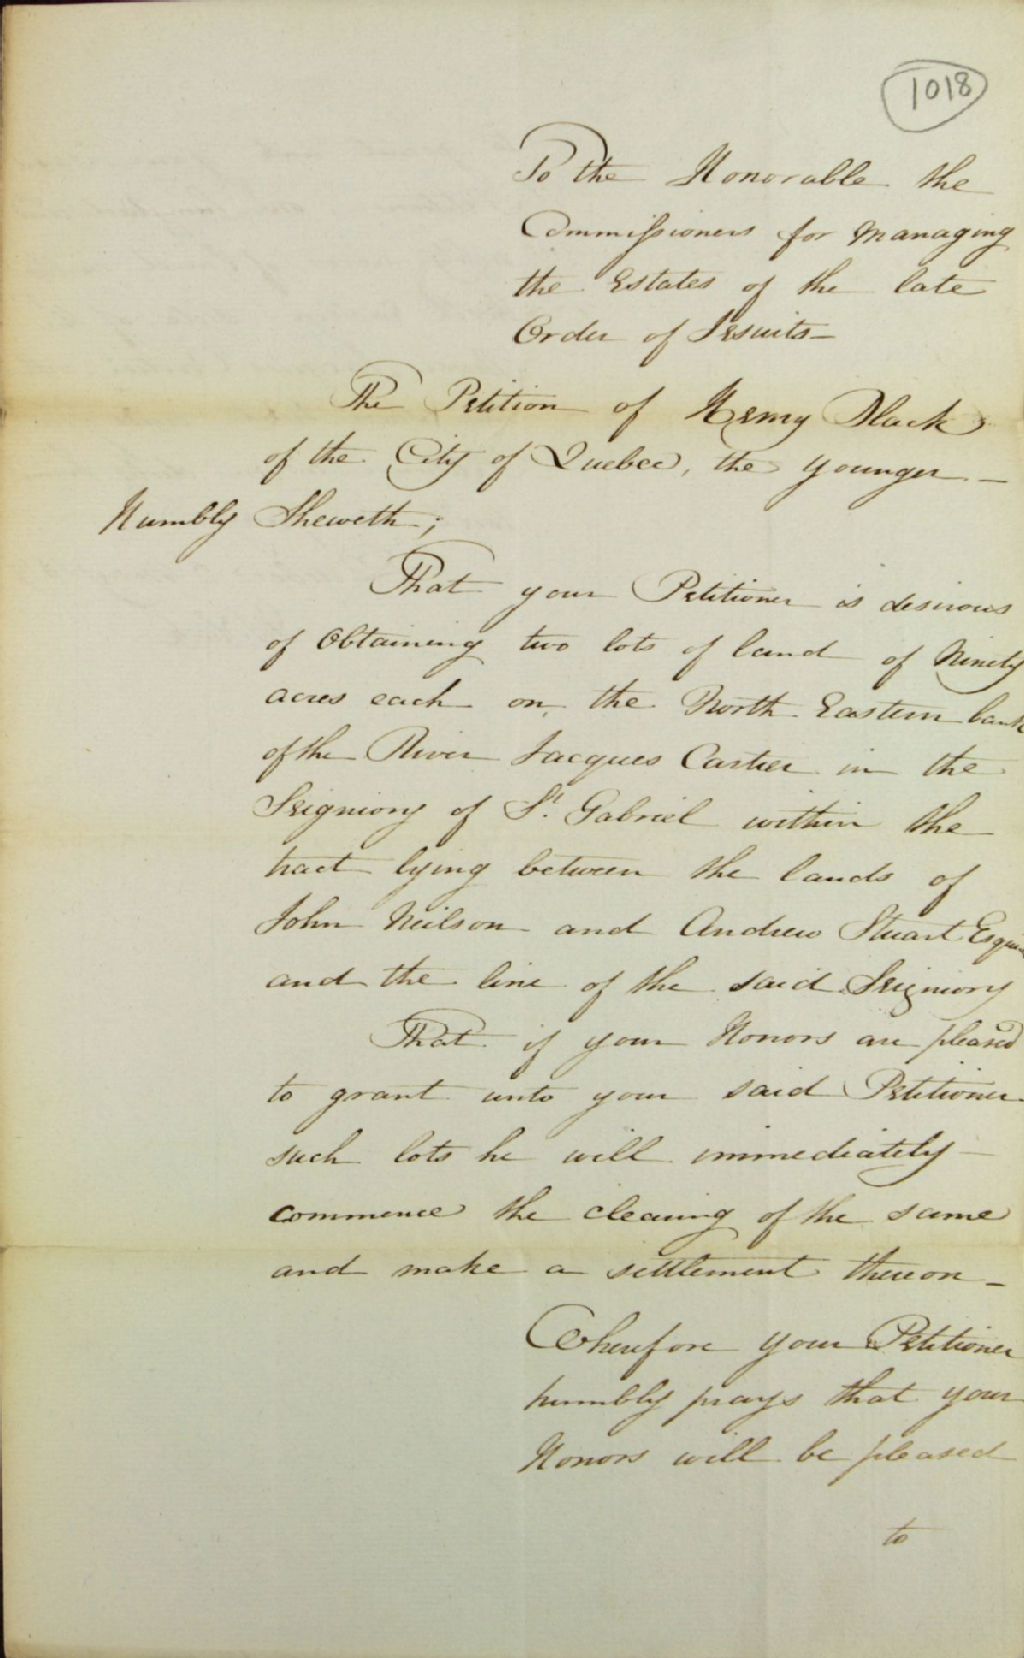 1018
To the Honorable the
Commissioners for Managing
the Estates of the late
Order of Jesuits—
The Petition of Henry Black
of the City of Quebec, the younger—
Humbly Sheweth;
That your Petitioner is desirous
of Obtaining two lots of land of Ninety
acres each on the North Eastern bank
of the River Jacques Cartier in the
Seigniory of St. Gabriel within the
tract lying between the lands of
John Neilson and Andrew Stuart
and the line of the said Seigniory
That if your Honors are pleased
to grant unto your said Petitioner
such lots he will immediately—
commence the clearing of the same
and make a settlement thereon—
Wherefore your Petitioner
humbly prays that your
Honors will be pleased
to